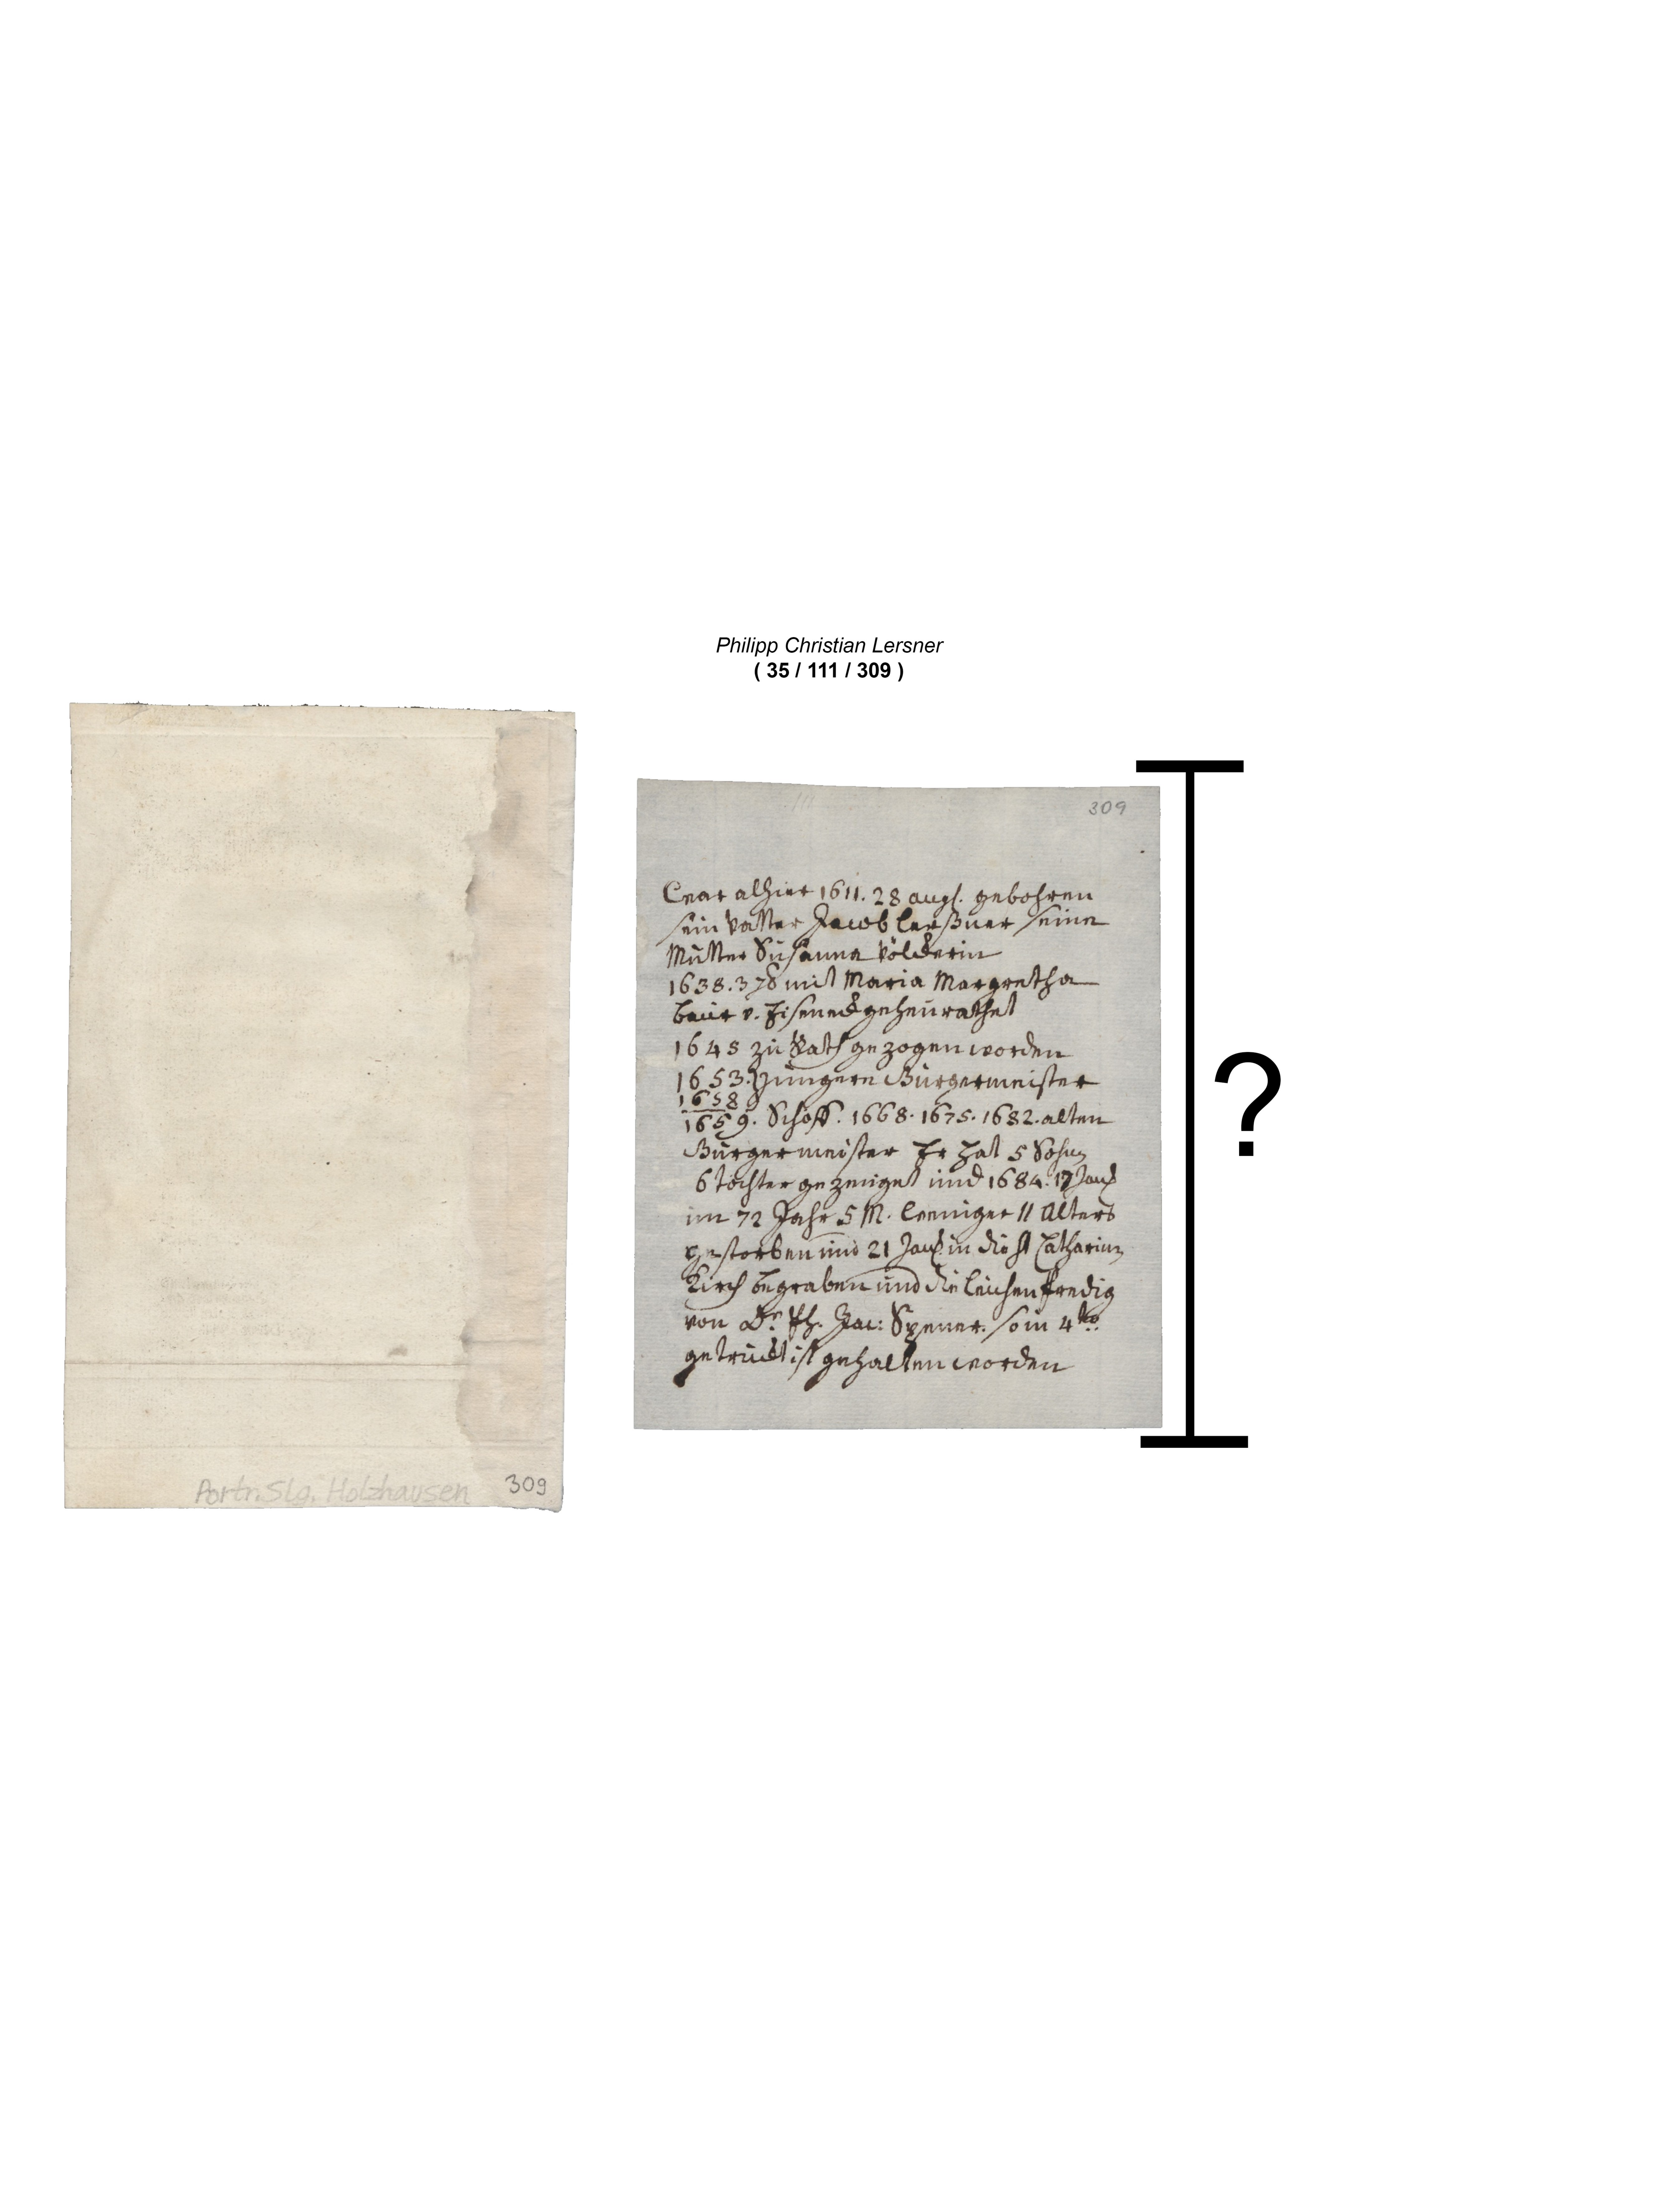 Philipp Christian Lersner
( 35 / 111 / 309 )
Portr. Slg. Holzhausen 309
111 309
War alhier 1611. 28 augs. gebohren
sein Vatter Jacob Lerßner seine
Mutter Susanna Völckerin
1638. mit Maria Margretha
Baur v. Eiseneck geheurathet
1645 zu Rath gezogen worden
1653. Jüngere Bürgermeister
1658
1659. Schöff. 1668. 1675. 1682. alten
Bürgermeister Er hat 5 Sohn
6 tochter gezeuget und 1684. 17 Jan
im 72 Jahr 5 M. weniger 11 Alters
gestorben und 21 Jan in die St Catharin
Kirch begraben und die leichen predig
von Dr. Ph. Jac: Spener. so in 4to
getruckt ist gehalten worden
?